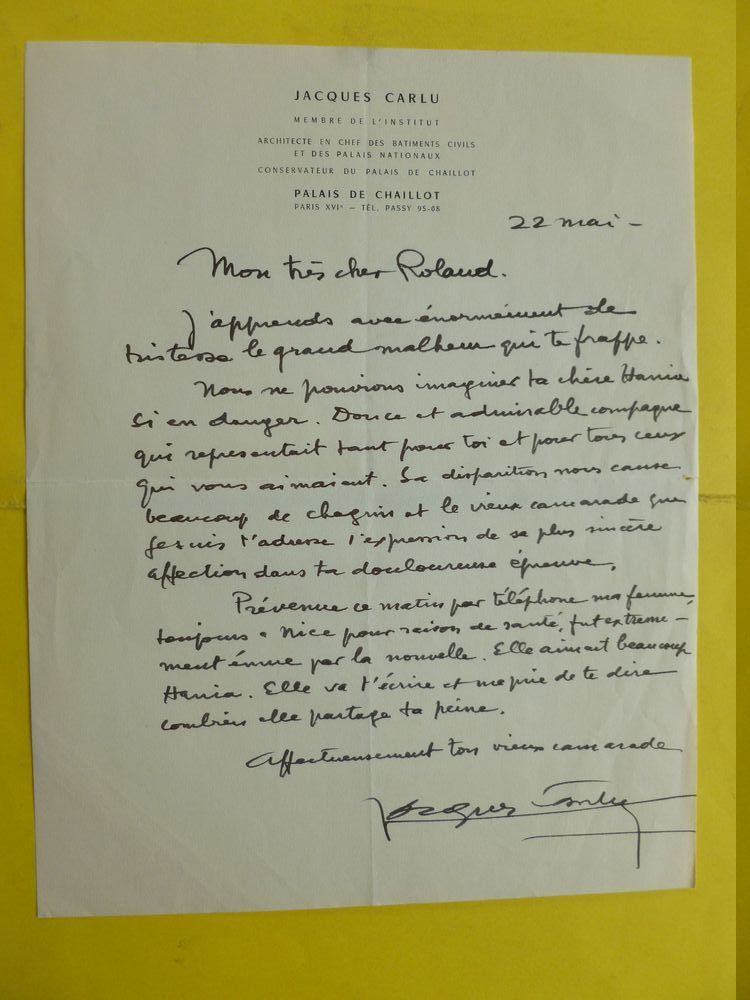 JACQUES CARLU
MEMBRE DE L'INSTITUT
ARCHITECTE EN CHEF DES BATIMENTS CIVILS
ET DES PALAIS NATIONAUX
CONSERVATEUR DU PALAIS DE CHAILLOT
PALAIS DE CHAILLOT
PARIS XVIe – TÉL. PASSY 95-08
22 mai –
Mon très cher Roland.
J'apprends avec énormément de
tristesse le grand malheur qui te frappe.
Nous ne pouvions imaginer ta chère Hania
si en danger. Douce et admirable compagne
qui representait tant pour toi et pour tous ceux
qui vous aimaient. Sa disparition nous cause
beaucoup de chagrin et le vieux camarade que
je suis t'adresse l'expression de sa plus sincère
affection dans ta douloureuse épreuve.
Prévenue ce matin par téléphone ma femme,
toujours a Nice pour raison de santé, fut extreme-
ment émue par la nouvelle. Elle aimait beaucoup
Hania. Elle va t'écrire et me prie de te dire
combien elle partage ta peine.
Affectueusement ton vieux camarade
Jacques Carlu